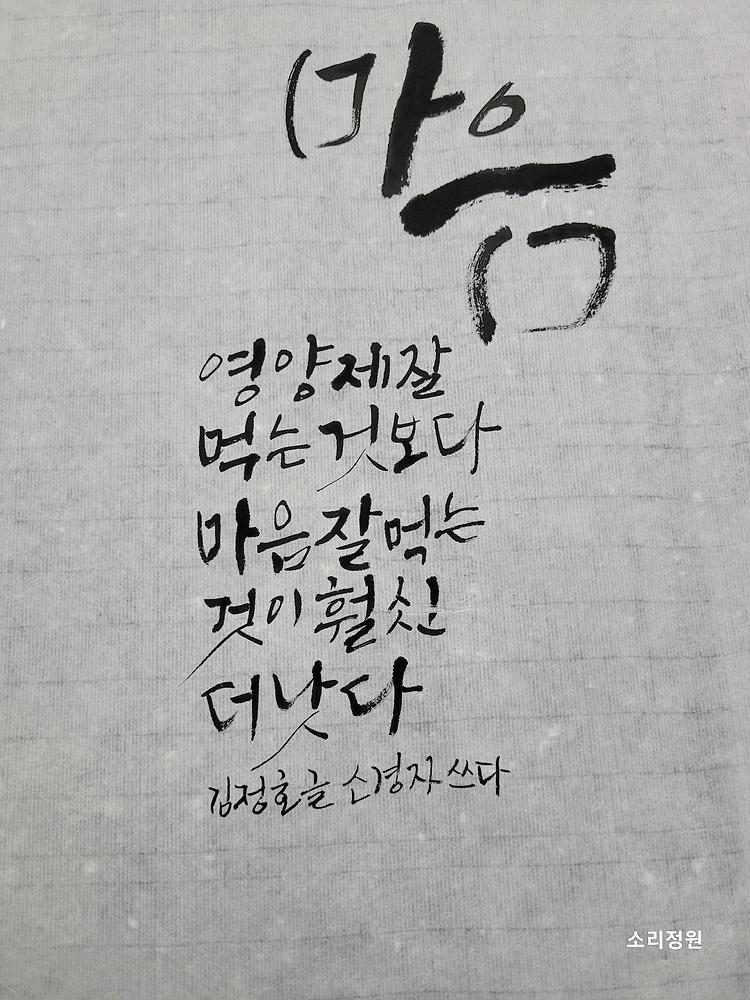 마음
영양제 잘
먹는 것보다
마음 잘 먹는
것이 훨씬
더 낫다
김정호 글 신경자 쓰다
소리정원